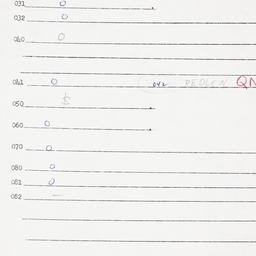 031 0
032 0
040 0
041 0 042 PEDLEN QN
050 $
060 0
070 0
080 0
081 0
082 —